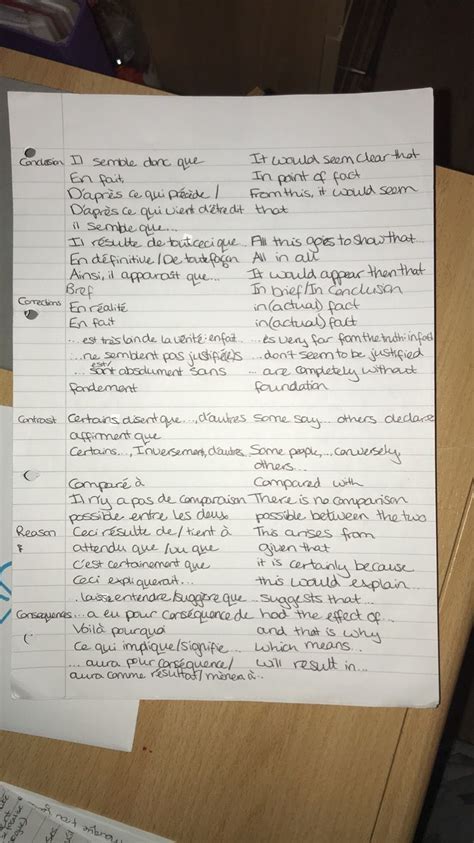 Conclusion Il semble donc que It would seem clear that
En fait, In point of fact
D'après ce qui précède / From this, it would seem
D'après ce qui vient d'être dit that
il semble que...
Il résulte de tout ceci que All this goes to show that...
En définitive / De toute façon All in all
Ainsi, il apparaît que... It would appear then that
Bref In brief/In Conclusion
Corrections En réalité in (actual) fact
En fait in (actual) fact
...est très loin de la vérité: en fait ...is very far from the truth: in fact
...ne semblent pas justifié(e)s ...don't seem to be justified
... est/sont absolument sans ... are completely without
fondement foundation
Contrast Certains disent que..., d'autres Some say... others declare
affirment que
Certains..., Inversement, d'autres Some people,... conversely,
others...
Comparé à Compared with
Il n'y a pas de comparaison There is no comparison
possible entre les deux possible between the two
Reason Ceci résulte de/tient à This arises from
attendu que / vu que given that
c'est certainement que it is certainly because
Ceci expliquerait... this would explain...
..laisse entendre/suggère que ..suggests that...
Consequences ... a eu pour conséquence de had the effect of...
Voilà pourquoi and that is why
Ce qui implique/signifie... which means...
... aura pour conséquence/ will result in...
aura comme résultat/ mènera à...